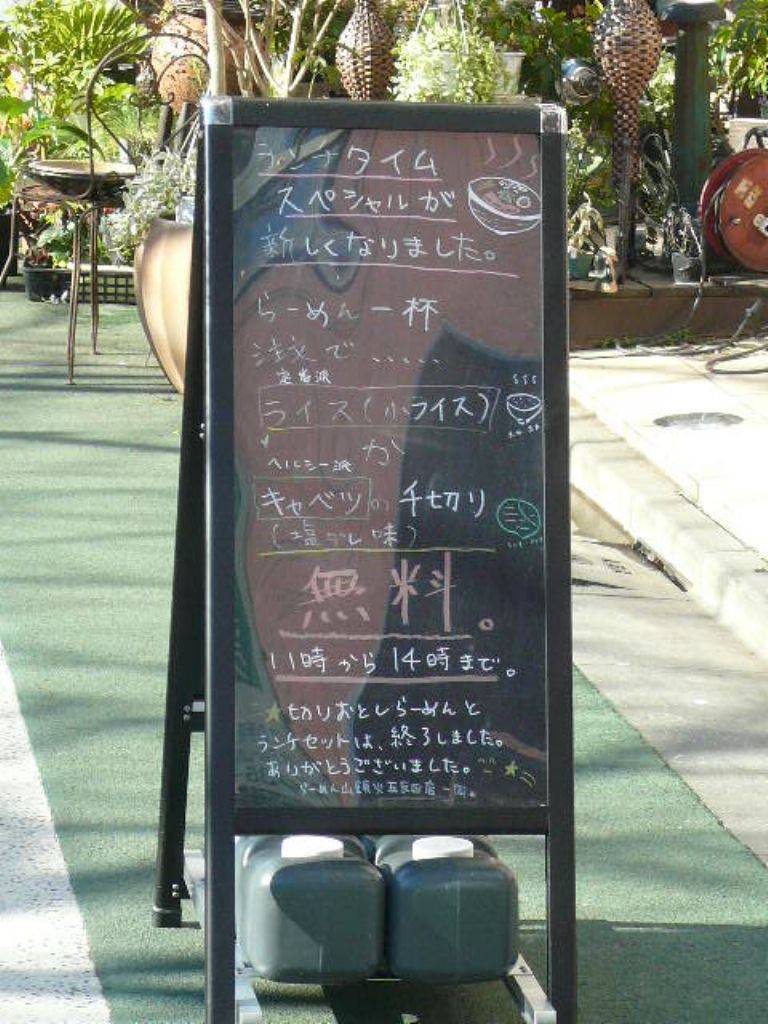 ランチタイム
スペシャルが
新しくなりました。
らーめん一杯
注文で……
定番派
ライス(小ライス)
か
ヘルシー派
キャベツの千切り
(塩ダレ味)
無料。
11時から14時まで。
切りおとしらーめんと
ランチセットは、終了しました。
ありがとうございました。
らーめん山頭火